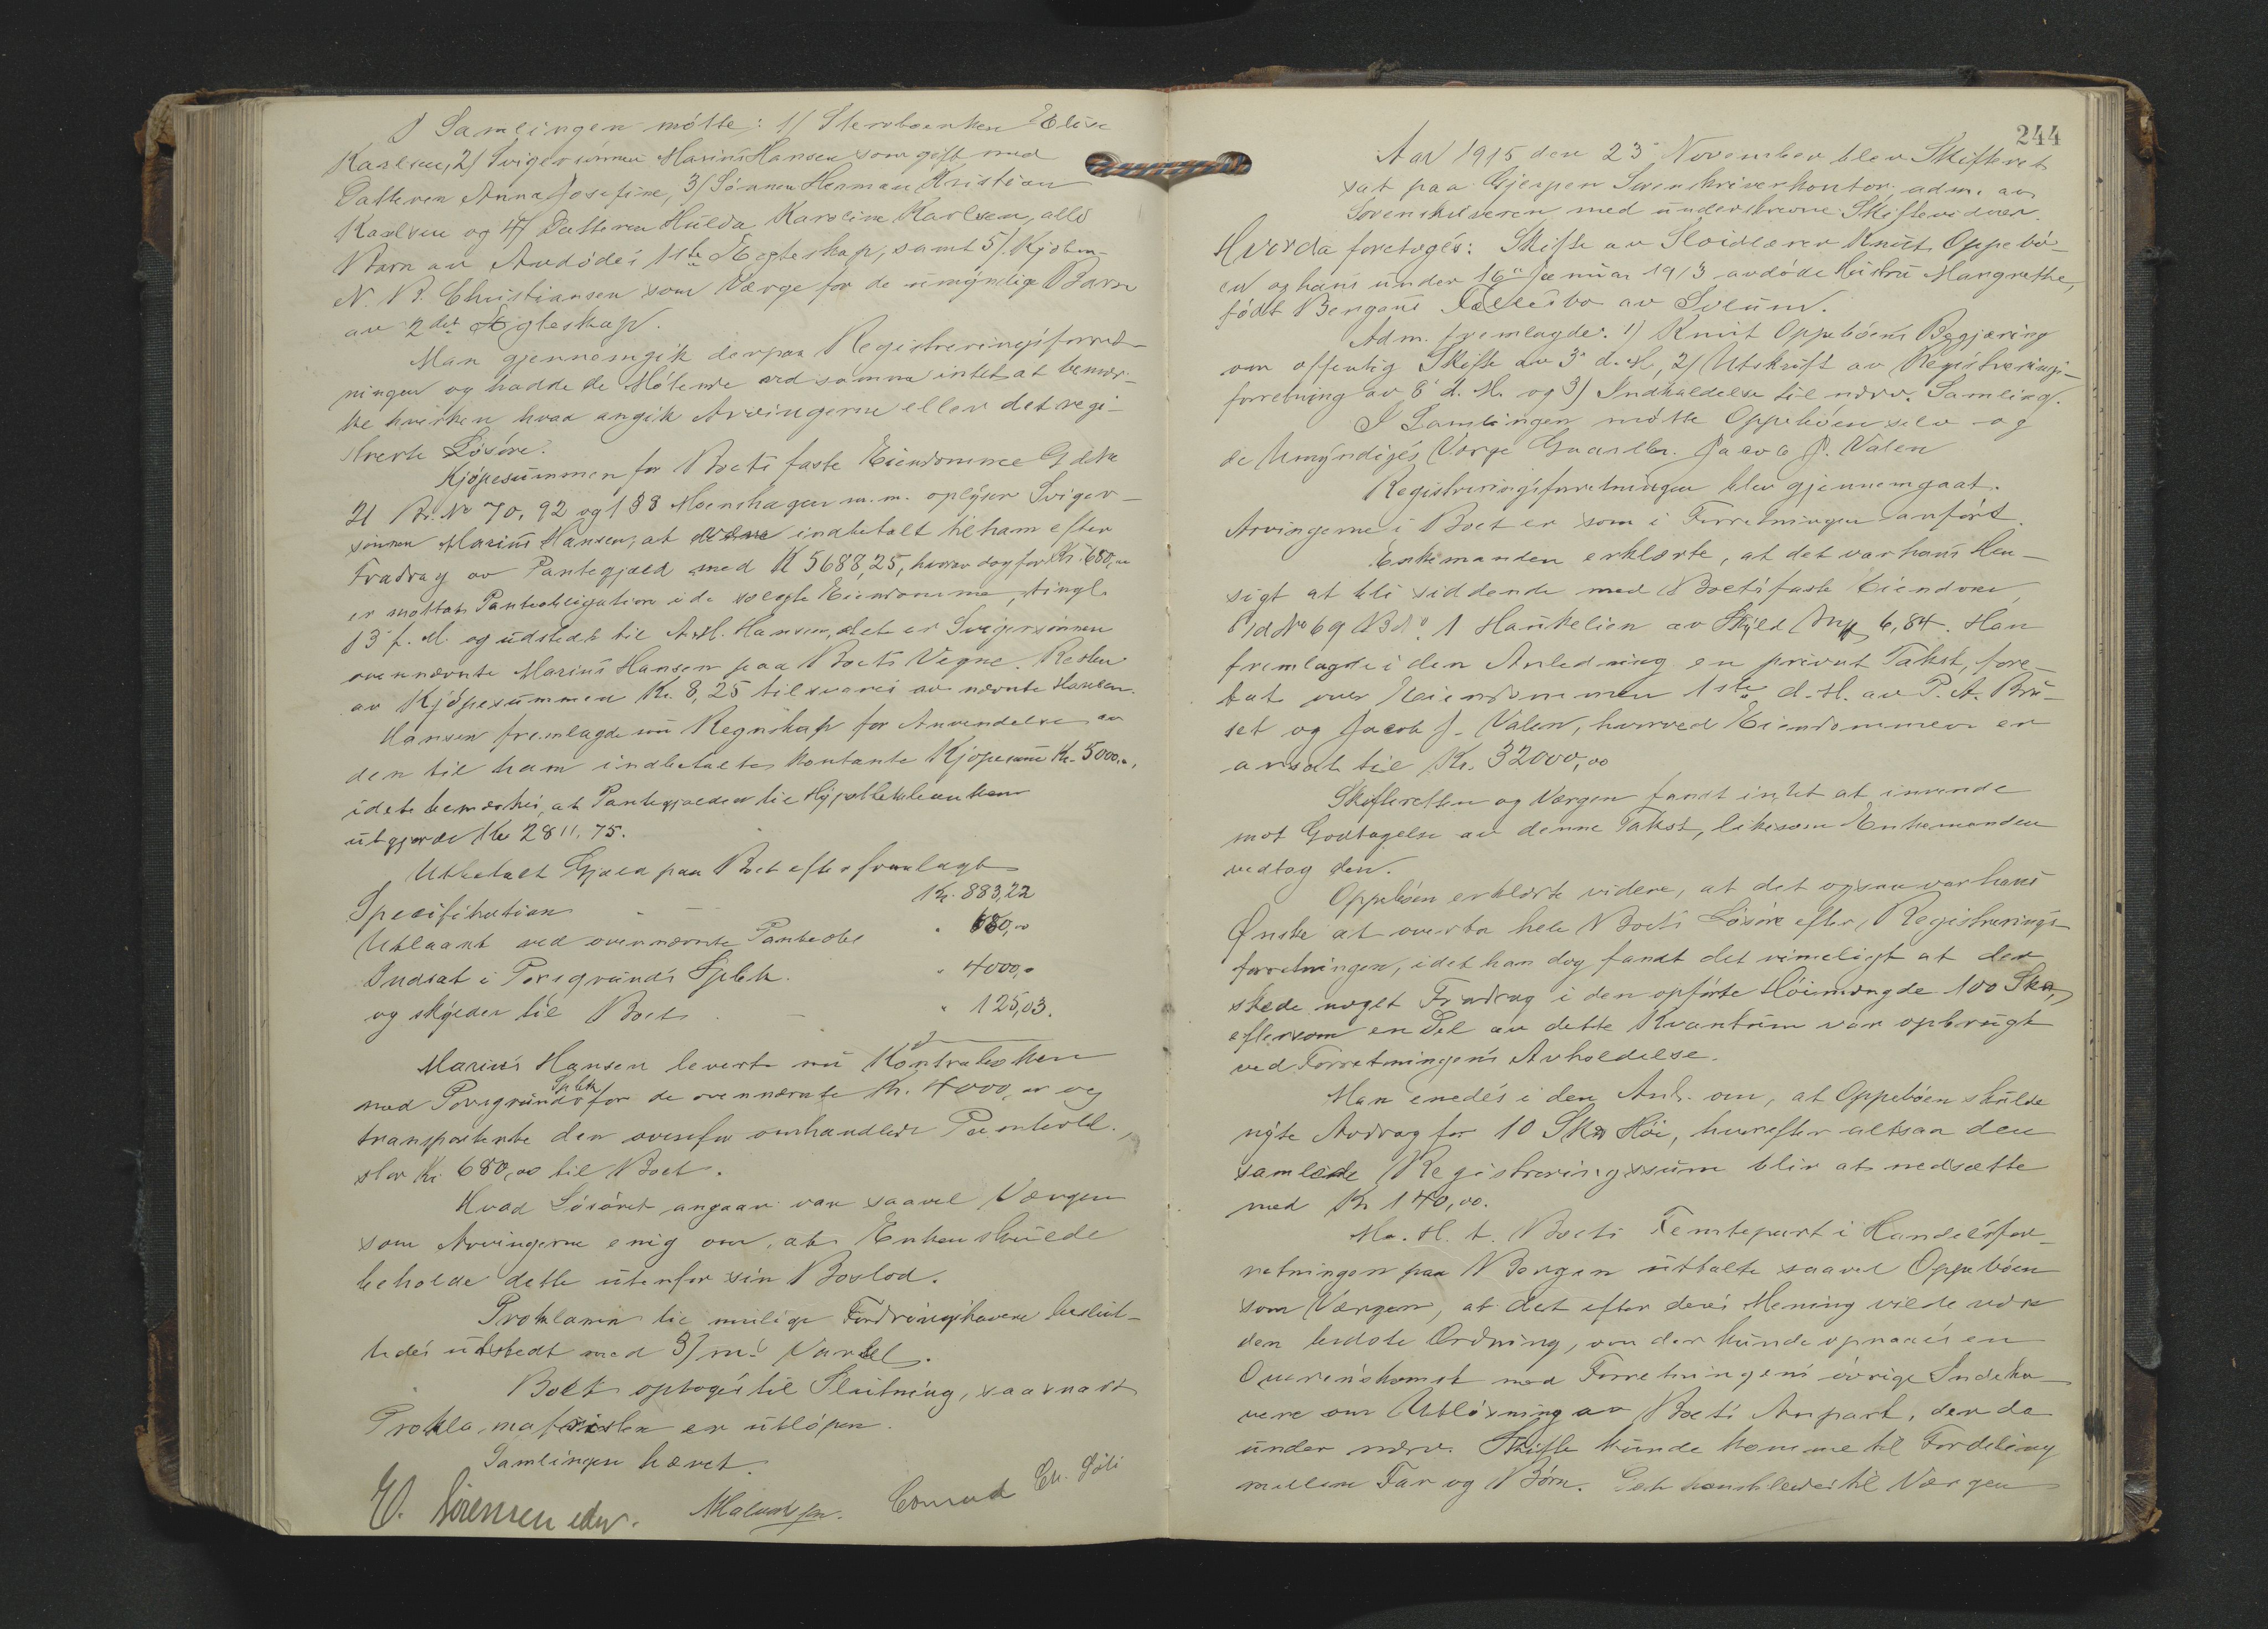 I Samlingen møtte: 1/ Sterboenken Elise
Karlsen, 2/ Svigersønnen Marius Hansen som gift med
Datteren Anna Josefine, 3/ Sønnen Herman Kristian
Karlsen og 4/ Datteren Hulda Karoline Karlsen, alle
Barn av Avdødes 1ste Egteskap, samt 5/ Kjøbm.
N. B. Christiansen som Værge for de umyndige Barn
av 2det Egteskap.
Man gjennemgik derpaa Registreringsforret-
ningen og hadde de Møtende ved samme intet at bemær-
ke hverken hvad angik Arvingerne eller det regi-
strerte Løsøre.
Kjøpesummen for Boets faste Eiendomme G.
21 Br. No 70, 92 og 138 Moenshagen m.m. oplyser Sviger-
sønnen Marius Hansen, at være indbetalt til ham efter
Fradrag av Pantegjæld med K 5688,25, hvorav dog for Kr. 680,00
er mottat Panteobligation i de solgte Eiendomme, tingl.
13 f. M. og udstedt til A. M. Hansen, det er Svigersønnen
ovennævnte Marius Hansen paa Boets Vegne. Resten
av Kjøpesummen Kr. 8,25 tilsvares av nævnte Hansen.
Hansen fremlagde nu Regnskap for Anvendelse av
den til ham indbetalte kontante Kjøpesum Kr. 5000,00,
idet bemærkes, at Pantegjælden til Hypothekbanken
utgjorde Kr 2811.75.
Utbetalt Gjæld paa Boet efter fremlagt
Specifikation - — Kr. 883,22
Utlaant ved ovennævnte Panteobl. " 680,00
Indsat i Porsgrunds Spbk. " 4000,00
og skylder til Boet - " 125,03.
Marius Hansen leverte nu Kontraboken
med Porsgrunds Spbk for de ovennævnte Kr. 4000,00 og
transporterte den ovenfor omhandlede Panteobl.,
stor Kr. 680,00 til Boet.
Hvad Løsøret angaar var saavel Værgen
som Arvingerne enig om, at Enken skulde
beholde dette utenfor sin Boslod.
Proklama til mulige Fordringshavere beslut-
tedes utstedt med 3/m's Varsel.
Boet optoges til Slutning, saasnart
Proklamafristen er utløpen.
Samlingen hævet.
E. Sørensen edv. Conrad Chr. Solli
244
Aar 1915 den 23' November blev Skifteret
sat paa Gjerpen Sorenskriverkontor, adm. av
Sorenskriveren med underskrevne Skiftevidner.
Hvorda foretoges: Skifte av Sløidlærer Knut Oppebø-
en og hans under 16' Januar 1913 avdøde Hustru Margrethe,
født Bergans Fællesbo av Solum.
Adm. fremlagde: 1) Knut Oppebøens Begjæring
om offentlig Skifte av 3' d. M, 2/ Utskrift av Registrerings-
forretning av 8' d. M. og 3/ Indkaldelse til nærv. Samling.
I Samlingen møtte Oppebøen selv og
de Umyndiges Værge Gaardbr. Jacob J. Valen
Registreringsforretningen blev gjennemgaat.
Arvingerne i Boet er som i Forretningen anført.
Enkemanden erklærte, at det var hans Hen-
sigt at bli siddende med Boets faste Eiendom
Gd No 69 Bd No. 1 Haukelien av Skyld Mrk 6,84. Han
fremlagde i den Anledning en privat Takst, fore-
tat over Eiendommen 1ste d. M. av P. A. Bru-
set og Jacob J. Valen, hvorved Eiendommen er
ansat til Kr. 32000,00
Skifteretten og Værgen fandt intet at invende
mot Godtagelse av denne Takst, likesom Enkemanden
vedtog den.
Oppebøen erklærte videre, at det ogsaa var hans
Ønske at overta hele Boets Løsøre efter Registrerings-
forretningen, idet han dog fandt det rimeligt at der
skede noget Fradrag i den opførte Høimængde 100 Skp,
eftersom en Del av dette Kvantum var opbrugt
ved Forretningens Avholdelse.
Man enedes i den Anl. om, at Oppebøen skulde
nyte Avdrag for 10 Skp Høi, hvorefter altsaa den
samlede Registreringssum blir at nedsætte
med Kr 140,00.
M. H. t. Boets Femtepart i Handelsfor-
retningen paa Bergan uttalte saavel Oppebøen
som Værgen, at det efter deres Mening vilde være
den bedste Ordning, om der kunde opnaaes en
Overenskomst med Forretningens øvrige Indeha-
vere om Utløsning av Boets Anpart, der da
under nærv. Skifte kunde komme til Fordeling
mellem Far og Børn. Det henstilledes til Værgen